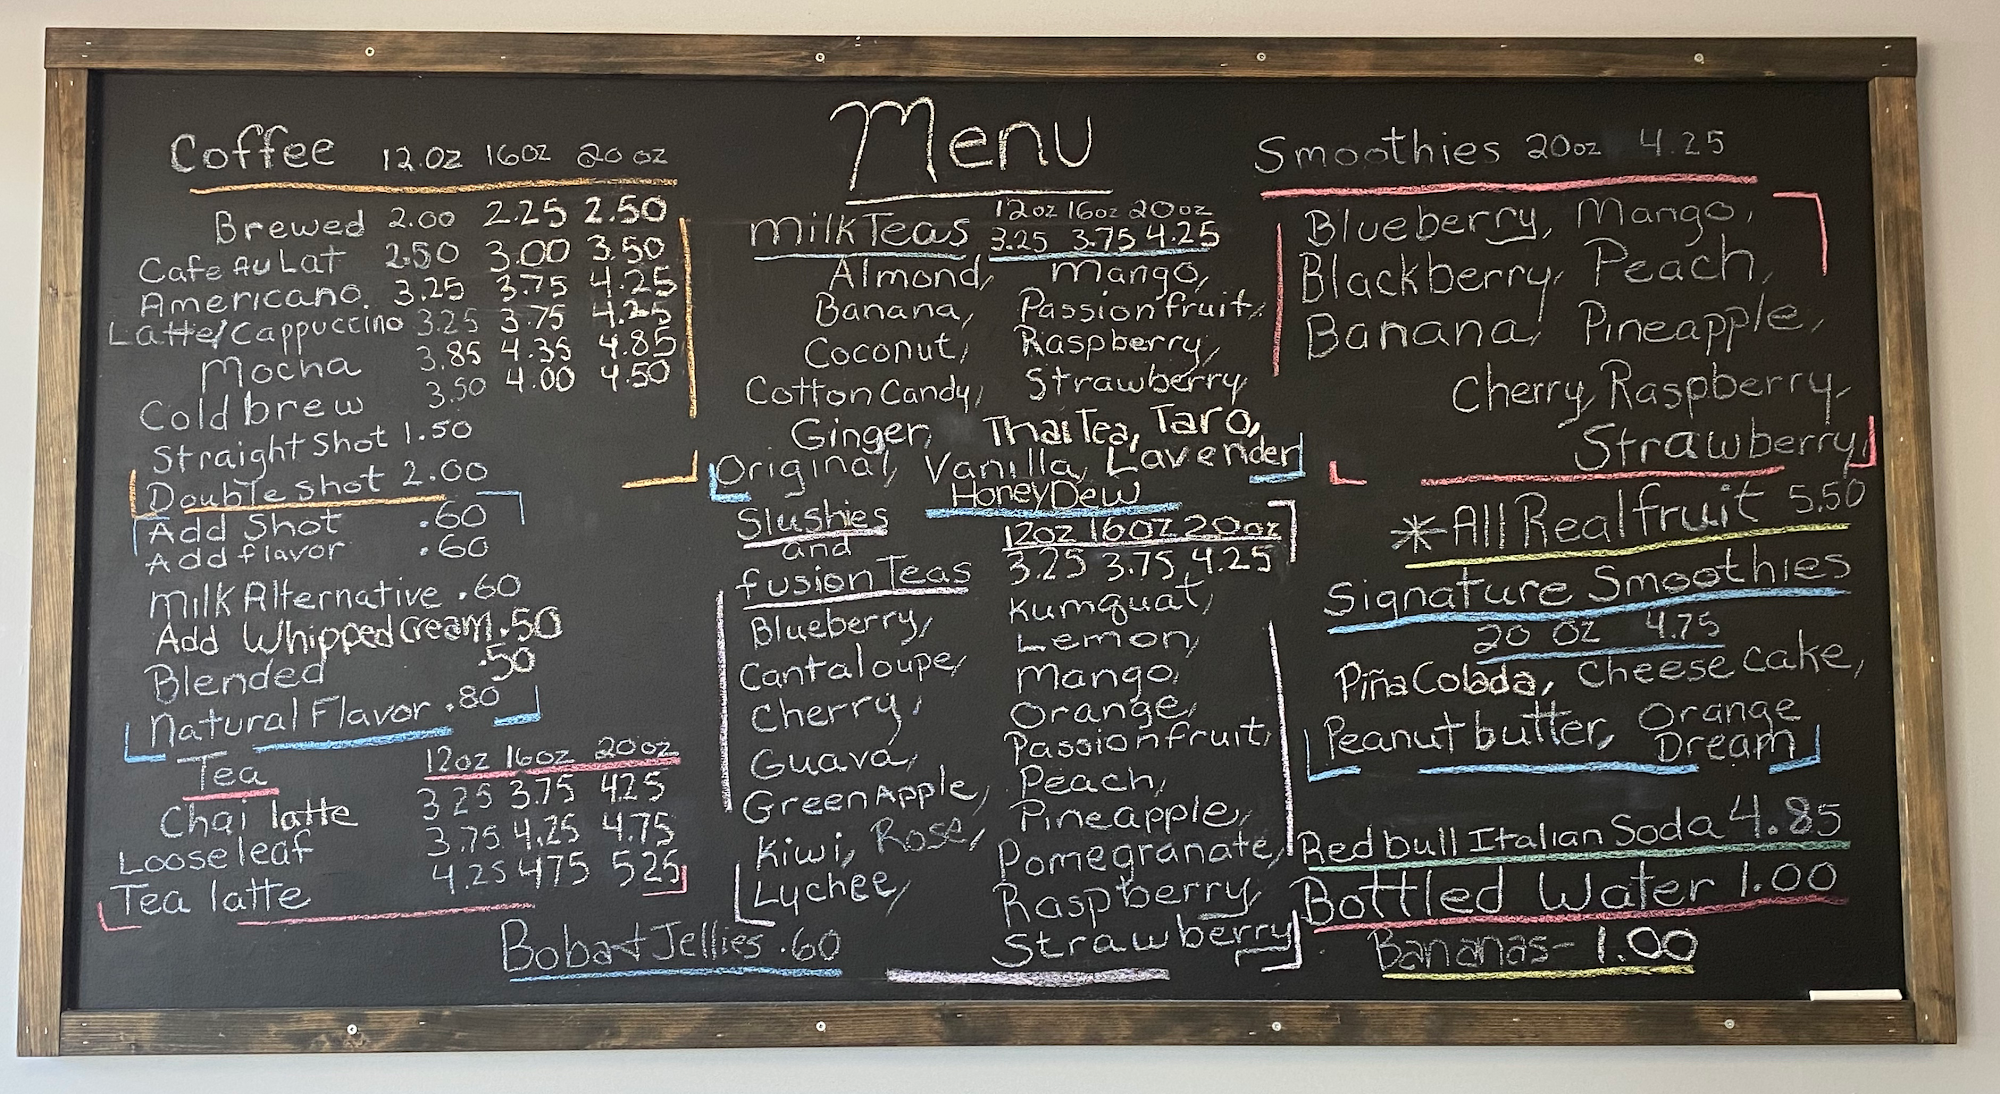 Menu
Coffee 12.oz 16oz 20 oz
Brewed 2.00 2.25 2.50
Cafe Au Lat 2.50 3.00 3.50
Americano. 3.25 3.75 4.25
Latte/Cappuccino 3.25 3.75 4.25
Mocha 3.85 4.35 4.85
Cold brew 3.50 4.00 4.50
Straight Shot 1.50
Double shot 2.00
Add Shot .60
Add flavor .60
Milk Alternative .60
Add Whipped cream .50
Blended .50
Natural Flavor .80
Tea 12oz 16oz 20oz
Chai latte 3.25 3.75 4.25
Loose leaf 3.75 4.25 4.75
Tea latte 4.25 475 525
Boba & Jellies .60
12oz 16oz 20oz
Milk Teas 3.25 3.75 4.25
Almond, Mango,
Banana, Passionfruit,
Coconut, Raspberry,
Cotton Candy, Strawberry
Ginger, Thai Tea, Taro,
Original, Vanilla, Lavender
HoneyDew
Slushies
and
fusion Teas
12oz 16oz 20oz
3.25 3.75 4.25
Blueberry,
Cantaloupe,
Cherry,
Guava,
Green Apple,
Kiwi, Rose,
Lychee,
Kumquat,
Lemon,
Mango,
Orange,
Passionfruit,
Peach,
Pineapple,
Pomegranate,
Raspberry,
Strawberry
Smoothies 20oz 4.25
Blueberry, Mango,
Blackberry, Peach,
Banana, Pineapple,
Cherry, Raspberry,
Strawberry,
*All Real fruit 5.50
Signature Smoothies
20 oz 4.75
Piña Colada, Cheese cake,
Peanut butter, Orange Dream
Redbull Italian Soda 4.85
Bottled Water 1.00
Bananas- 1.00